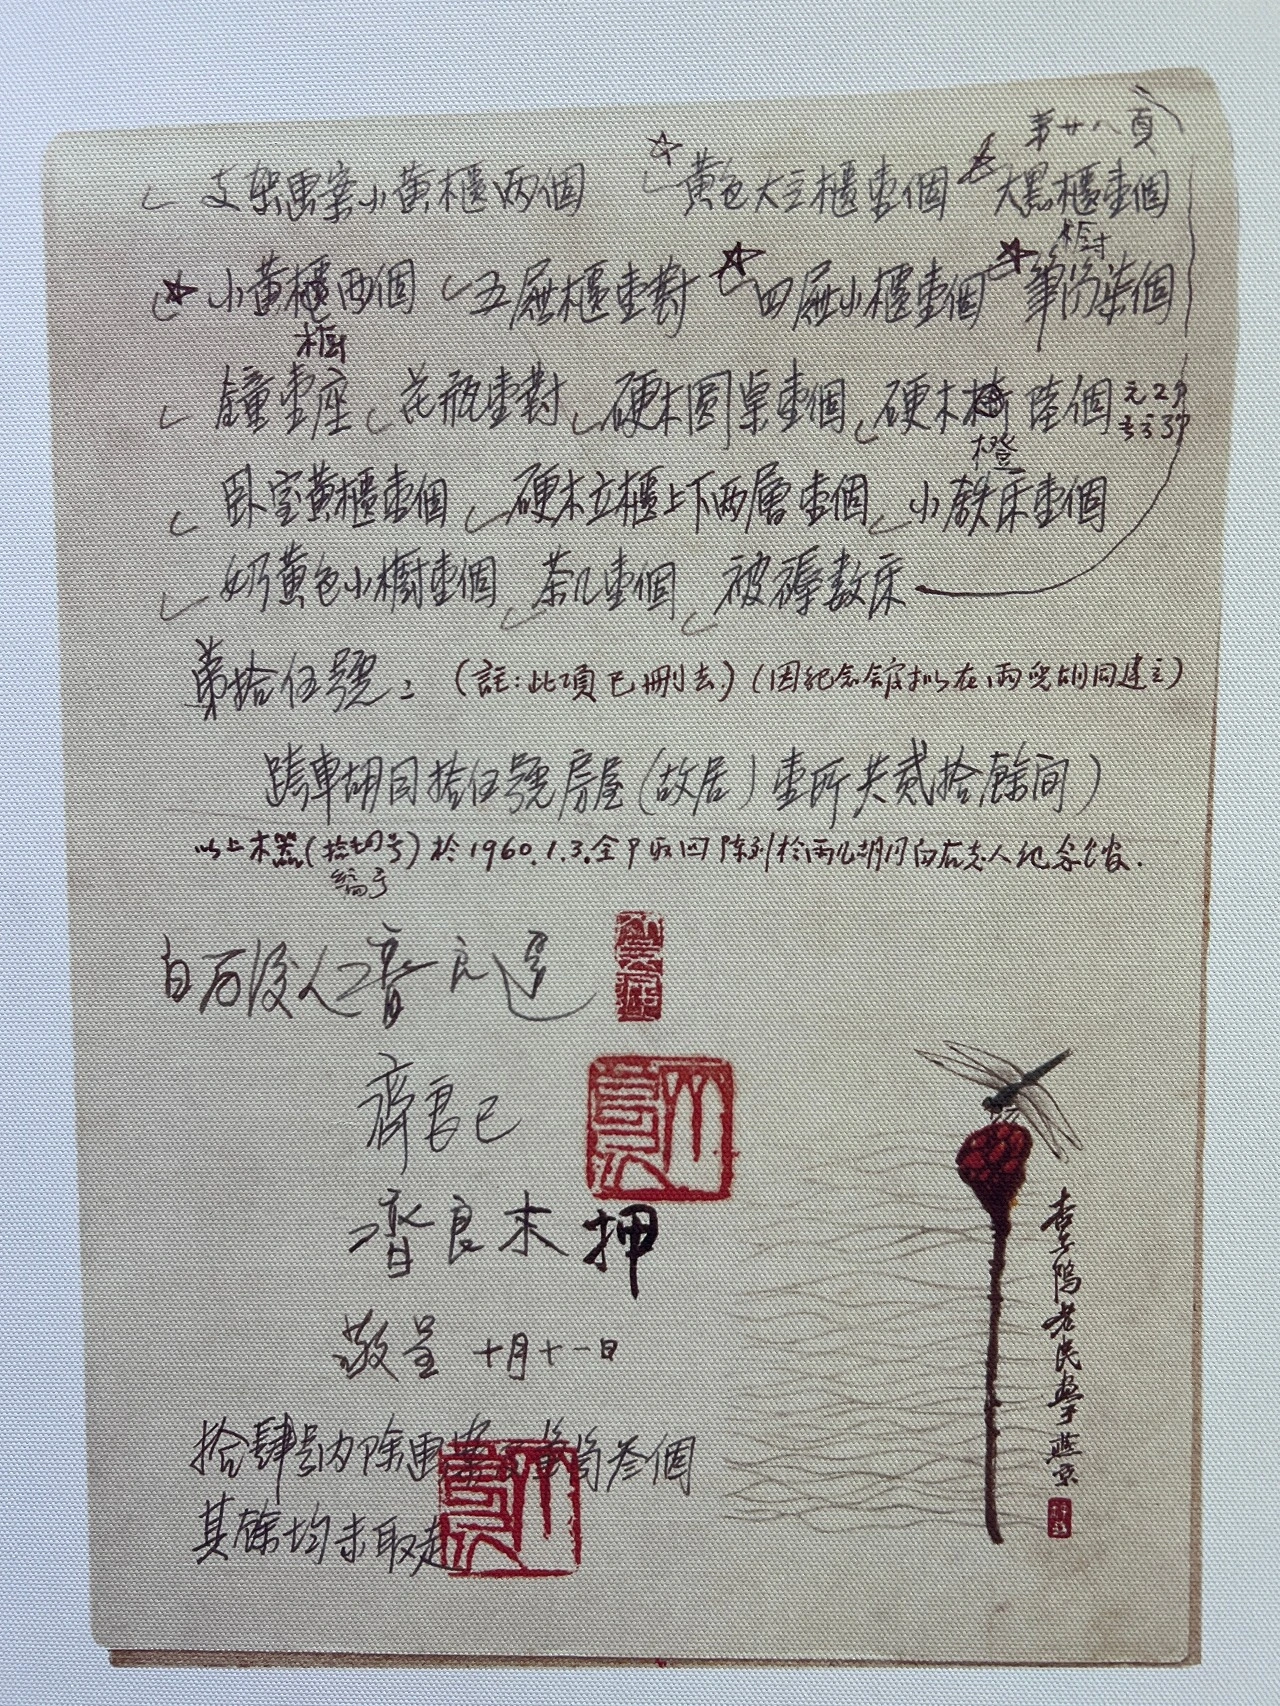 第廿八頁
支架畫案小黃櫃兩個 黃色大立櫃壹個 大黑櫃壹個
小黃櫃兩個 五屜櫃壹對 四屜小櫃壹個 筆筒柒個
櫥
櫥
鐘壹座 花瓶壹對 硬木圓桌壹個 硬木椅陸個
橙
卧室黃櫃壹個 硬木立櫃上下兩層壹個 小鉄床壹個
奶黃色小櫥壹個 茶几壹個 被褥數床
第拾伍號：（註：此項已刪去）（因紀念館拟在雨兒胡同建立）
跨車胡同拾伍號房屋（故居）壹所共貳拾餘间）
以上木器（拾四号）於1960.1.3.全P收回陈列於雨儿胡同白石老人纪念館.
編号
白石后人齊良遲
齊良已
齊良末 押
敬呈 十月十一日
拾肆号内除画案 筆筒叁個
其餘均未取走
杏子隖老民 燕京